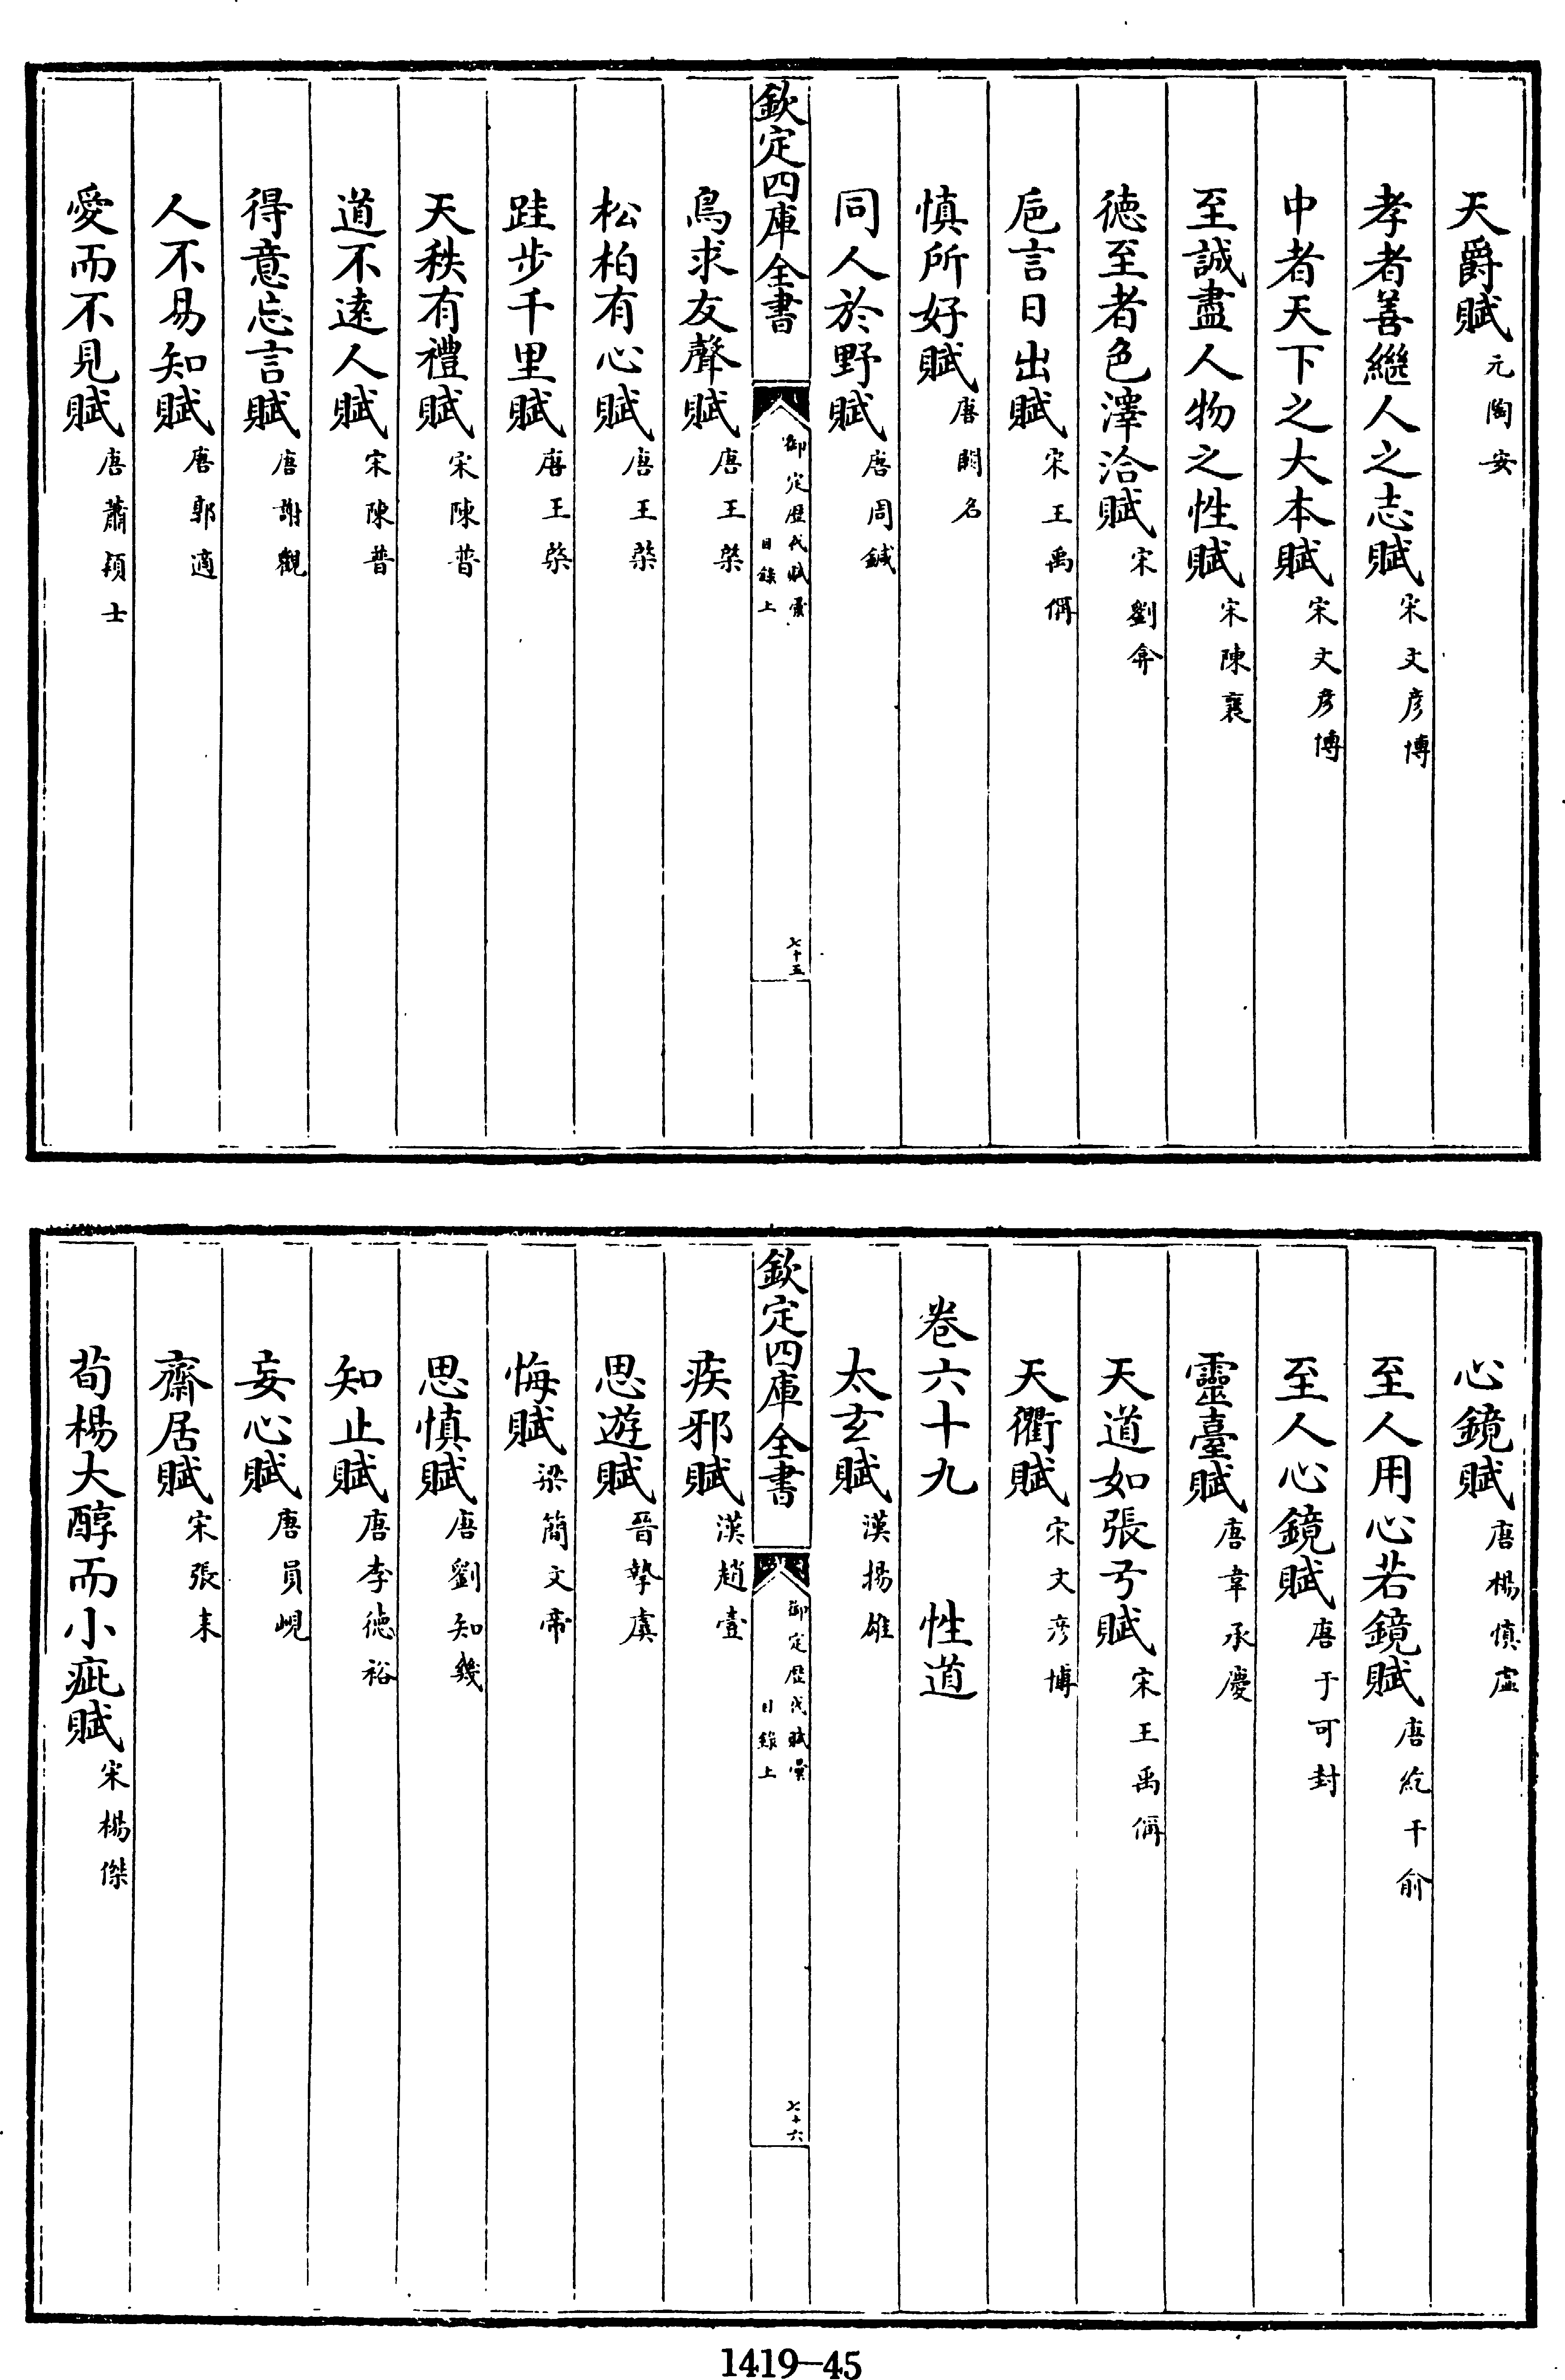 天爵賦元陶安
孝者善繼人之志賦宋文彥博
中者天下之大本賦宋文彥博
至誠盡人物之性賦宋陳襄
德至者色澤洽賦宋劉弇
巵言日出賦宋王禹偁
慎所好賦唐闕名
同人於野賦唐周鍼
欽定四庫全書
御定歴代賦彚
目錄上
七十五
鳥求友聲賦唐王棨
松柏有心賦唐王棨
跬步千里賦唐王棨
天秩有禮賦宋陳普
道不遠人賦宋陳普
得意忘言賦唐謝觀
人不易知賦唐郭適
愛而不見賦唐蕭穎士
心鏡賦唐楊慎虛
至人用心若鏡賦唐紇干俞
至人心鏡賦唐于可封
靈臺賦唐韋承慶
天道如張弓賦宋王禹偁
天衢賦宋文彥博
卷六十九 性道
太玄賦漢揚雄
欽定四庫全書
御定歴代賦彚
目錄上
七十六
疾邪賦漢趙壹
思遊賦晉摯虞
悔賦梁簡文帝
思慎賦唐劉知幾
知止賦唐李德裕
妄心賦唐員峴
齋居賦宋張耒
荀楊大醇而小疵賦宋楊傑
1419-45